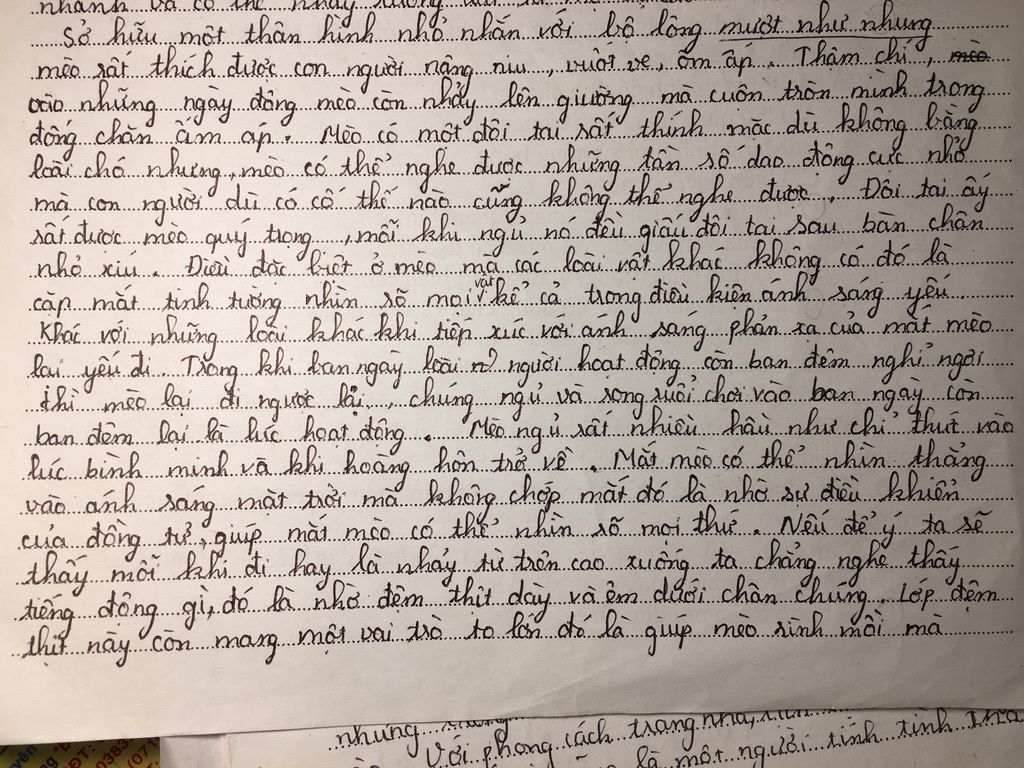 nhanh và có thể nhảy xuống
Sở hữu một thân hình nhỏ nhắn với bộ lông mượt như nhung
mèo rất thích được con người nâng niu, vuốt ve, ôm ấp. Thậm chí, mèo
vào những ngày đông mèo còn nhảy lên giường mà cuộn tròn mình trong
đống chăn ấm áp. Mèo có một đôi tai rất thính mặc dù không bằng
loài chó nhưng, mèo có thể nghe được những tần số dao động cực nhỏ
mà con người dù có cố thế nào cũng không thể nghe được. Đôi tai ấy
rất được mèo quý trọng, mỗi khi ngủ nó đều giấu đôi tai sau bàn chân
nhỏ xíu. Điều đặc biệt ở mèo mà các loài vật khác không có đó là
cặp mắt tinh tường nhìn rõ mọi vật kể cả trong điều kiện ánh sáng yếu
Khác với những loài khác khi tiếp xúc với ánh sáng phản xạ của mắt mèo
lại yếu đi. Trong khi ban ngày loài người hoạt động còn ban đêm nghỉ ngơi
thì mèo lại đi ngược lại, chúng ngủ và rong ruổi chơi vào ban ngày còn
ban đêm lại là lúc hoạt động. Mèo ngủ rất nhiều hầu như chỉ thức vào
lúc bình minh và khi hoàng hôn trở về. Mắt mèo có thể nhìn thẳng
vào ánh sáng mặt trời mà không chớp mắt đó là nhờ sự điều khiển
của đồng tử, giúp mắt mèo có thể nhìn rõ mọi thứ. Nếu để ý ta sẽ
thấy mỗi khi đi hay là nhảy từ trên cao xuống ta chẳng nghe thấy
tiếng động gì, đó là nhờ đệm thịt dày và êm dưới chân chúng. Lớp đệm
thịt này còn mang một vai trò to lớn đó là giúp mèo rình mồi mà
những
Với phong cách trang nhã,
là một người tinh tình
ĐT:
0383
(071